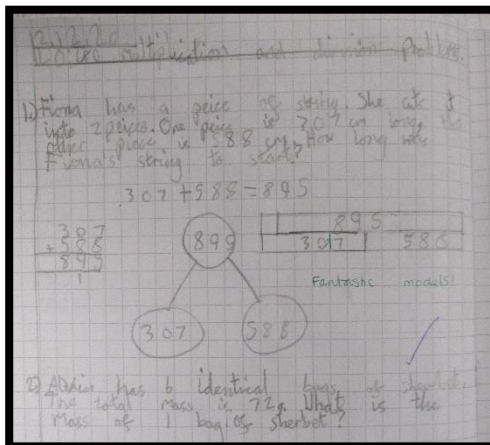 2.12.20
multiplication and division problems.
1.) Fiona has a peice of string. She cuts it
into 2 peices. One peice is 307 cm long, the
other piece is 588 cm. How long was
Fiona's string to start?
307 + 588 = 895
307
+ 588
895
1
895
307 588
895
307 588
Fantastic models!
2) has 6 identical bags of sherbet.
The total mass is 72g. What is the
mass of 1 bag of sherbet?